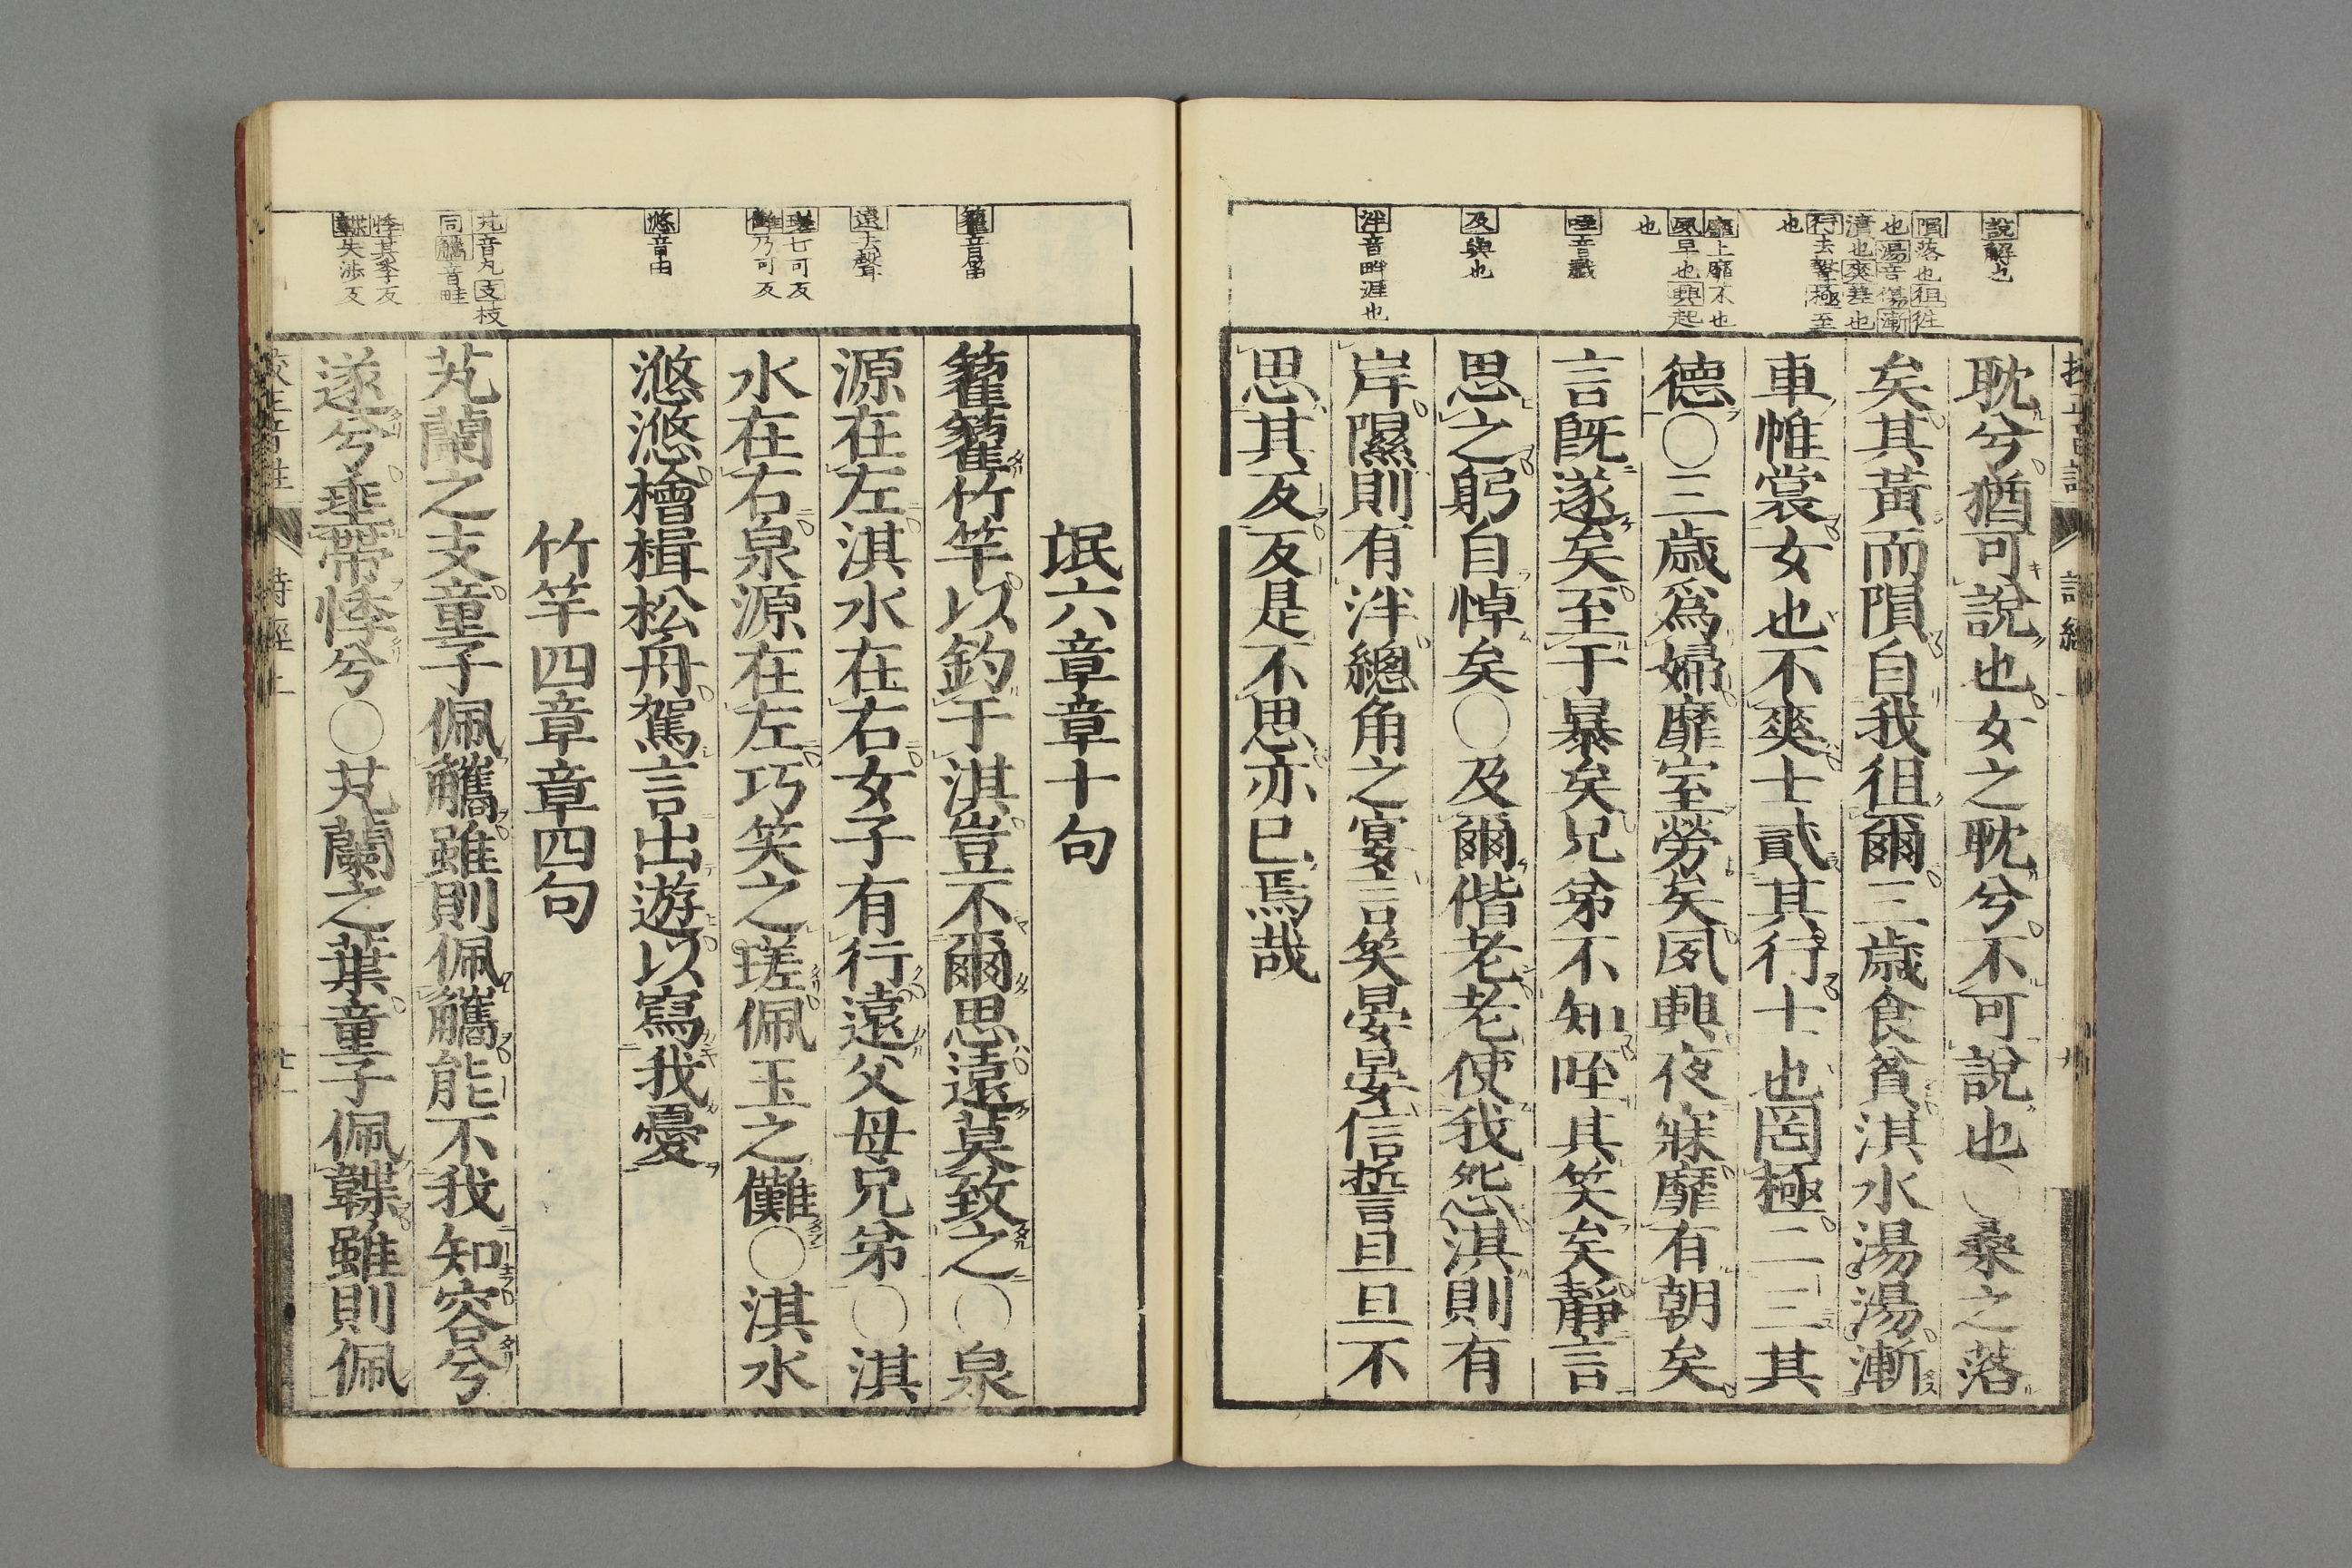 說解也
隕落也徂往
也湯音傷漸
漬也爽差也
行去聲極至
也
靡上靡不也
夙早也興起
也
咥音戲
及與也
泮音畔涯也
耽兮猶可說也女之耽兮不可說也○桑之落
矣其黃而隕自我徂爾三歳食貧淇水湯湯漸
車帷裳女也不爽士貳其行士也罔極二三其
德○三歳爲婦靡室勞矣夙興夜寐靡有朝矣
言既遂矣至于暴矣兄弟不知咥其笑矣靜言
思之躬自悼矣○及爾偕老老使我怨淇則有
岸隰則有泮總角之宴言笑晏晏信誓旦旦不
思其反反是不思亦已焉哉
籊音笛
遠去聲
瑳七可反
儺乃可反
滺音由
芄音丸支枝
同觿音畦
悸其季反
韘失渉反
氓六章章十句
籊籊竹竿以釣于淇豈不爾思遠莫致之○泉
源在左淇水在右女子有行遠父母兄弟○淇
水在右泉源在左巧笑之瑳佩玉之儺○淇水
滺滺檜楫松舟駕言出遊以寫我憂
竹竿四章章四句
芄蘭之支童子佩觿雖則佩觿能不我知容兮
遂兮垂帶悸兮○芄蘭之葉童子佩韘雖則佩